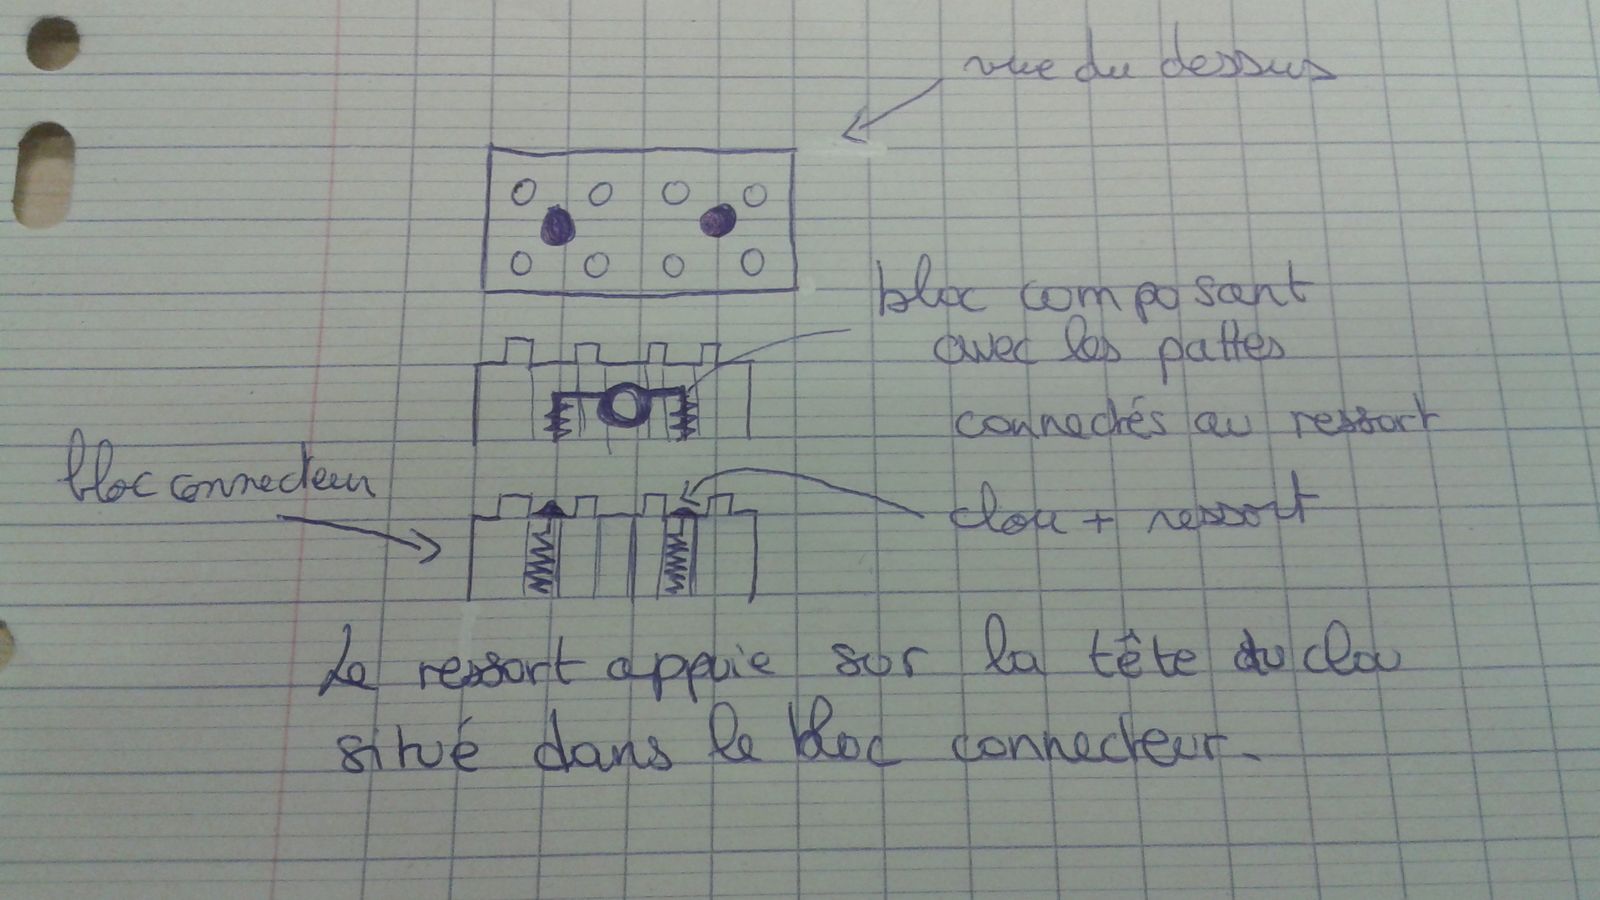 vue du dessus
bloc composant
avec les pattes
connectés au ressort
bloc connecteur
clou + ressort
Le ressort appuie sur la tête du clou
situé dans le bloc connecteur.